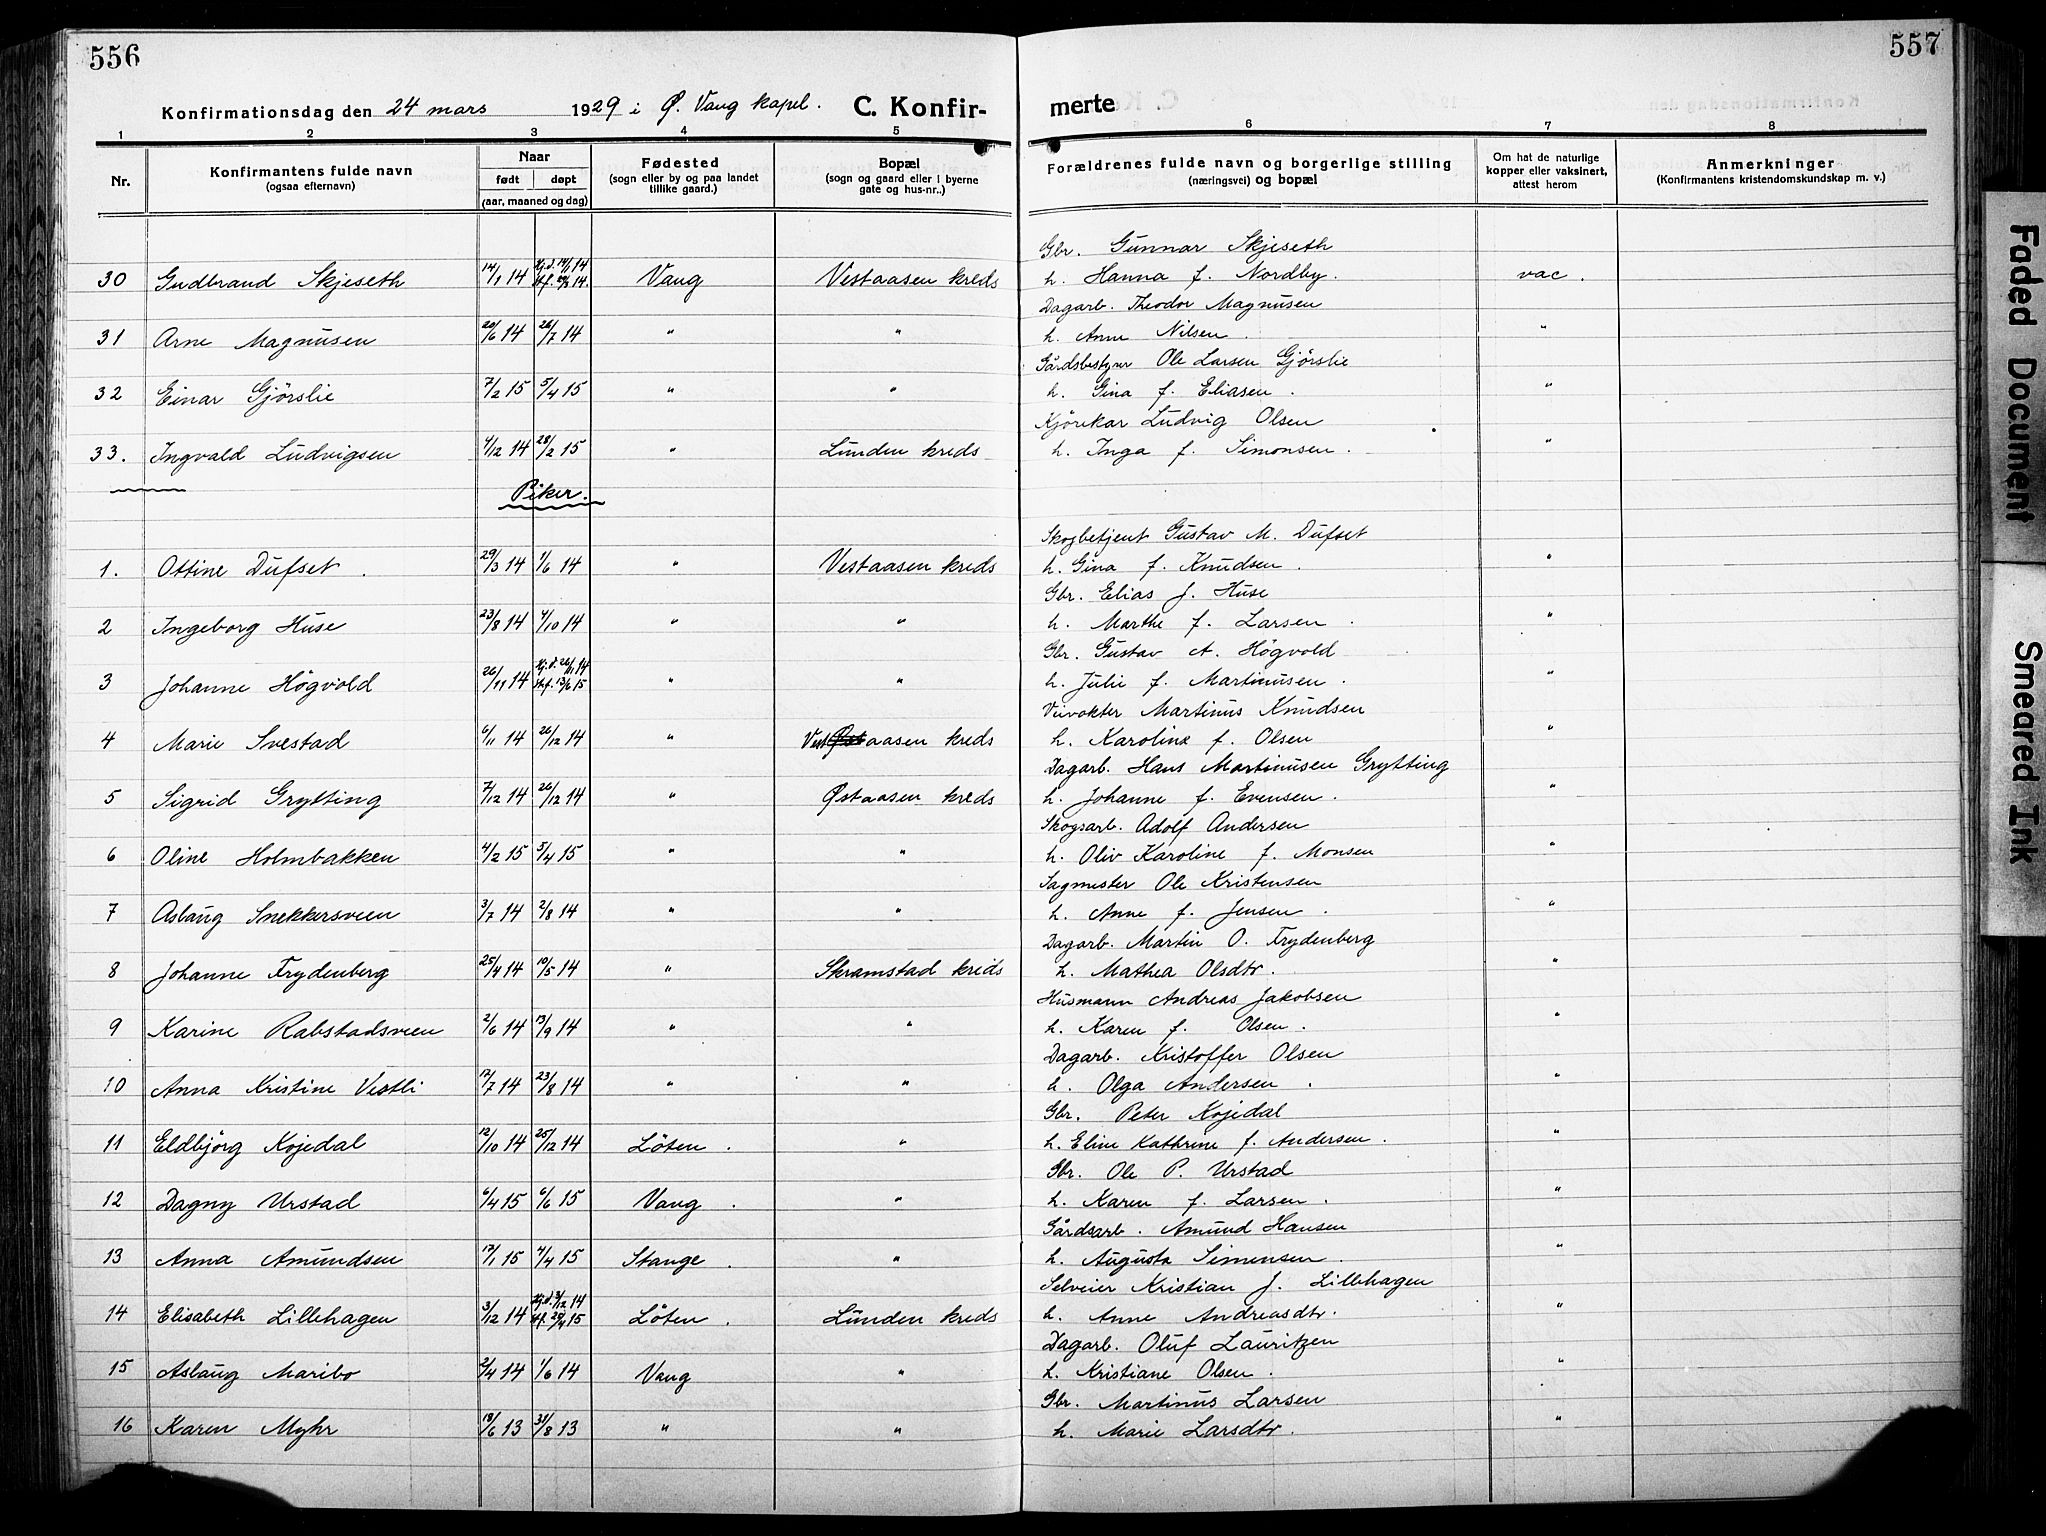 556
557
Konfirmationsdag den 24 mars 1929 i Ø. Vang kapel. C. Konfir-
merte
1 2 3 4 5 6 7 8
Nr. Konfirmantens fulde navn (ogsaa efternavn)
Naar født døpt (aar, maaned og dag)
Fødested (sogn eller by og paa landet tillike gaard.)
Bopæl (sogn og gaard eller i byerne gate og hus-nr..)
Forældrenes fulde navn og borgerlige stilling (næringsvei) og bopæl
Om hat de naturlige kopper eller vaksinert, attest herom
Anmerkninger (Konfirmantens kristendomskundskap m. v.)
Gbr. Gunnar Skjeseth
30 Gudbrand Skjeseth 14/1 14 Hj.d. 14/1 14 Stf. 14. Vang Vestaasen kreds h. Hanna f. Nordby. vac.
Dagarb. Theodor Magnusen
31 Arne Magnusen 20/6 14 26/7 14 " " h. Anne Nilsen. "
Gårdsbestyrer Ole Larsen Gjörslie
32 Einar Gjörslie 7/2 15 5/4 15 " " h. Gina f. Eliasen. "
Kjörekar Ludvig Olsen
33. Ingvald Ludvigsen 4/12 14 28/2 15 " Lunden kreds h. Inga f. Simonsen. "
Piker.
Skogbetjent Gustav M. Dufset
1. Ottine Dufset. 29/3 14 1/6 14 " Vestaasen kreds h. Gina f. Knudsen. "
Gbr. Elias J. Huse
2 Ingeborg Huse 23/8 14 4/10 14 " " h. Marthe f. Larsen. "
Gbr. Gustav A. Högvold
3 Johanne Högvold 26/11 14 Hj.d. 26/11 14 Stf. 13/6 15 " " h. Julie f. Martinusen. "
Veivokter Martinus Knudsen
4 Marie Svestad 6/11 14 26/12 14 " Vestaasen kreds h. Karoline f. Olsen "
Dagarb. Hans Martinusen Grytting
5 Sigrid Grytting 7/12 14 26/12 14 " Østaasen kreds h. Johanne f. Evensen. "
Skogsarb. Adolf Andersen
6 Oline Holmbakken 4/2 15 5/4 15 " " h. Oliv Karoline f. Monsen "
Sagmester Ole Kristensen
7 Aslaug Snekkersveen 3/7 14 2/8 14 " " h. Anne f. Jensen. "
Dagarb. Martin O. Frydenberg
8 Johanne Frydenberg 25/4 14 10/5 14 " Skramstad kreds h. Mathea Olsdtr. "
Husmann Andreas Jakobsen
9 Karine Rabstadsveen 2/6 14 13/9 14 " " h. Karen f. Olsen. "
Dagarb. Kristoffer Olsen
10 Anna Kristine Vestli 12/7 14 23/8 14 " " h. Olga Andersen. "
Gbr. Peter Kojedal
11 Eldbjörg Kojedal 12/10 14 25/12 14 Löten. " h. Eline Kathrine f. Andersen. "
Gbr. Ole P. Urstad
12 Dagny Urstad 6/4 15 6/6 15 Vang. " h. Karen f. Larsen. "
Gårdsarb. Amund Hansen
13 Anna Amundsen 17/1 15 4/4 15 Stange. " h. Augusta Simensen. "
Selveier Kristian J. Lillehagen
14 Elisabeth Lillehagen 3/12 14 Hj.d. 3/12 14 Stf. 25/4 15 Löten. Lunden kreds h. Anne Andreasdtr. "
Dagarb. Oluf Lauritzen
15 Aslaug Maribo 2/4 14 1/6 14 Vang " h. Kristiane Olsen. "
Gbr. Martinus Larsen
16 Karen Myhr 18/6 13 31/8 13 " " h. Marie Larsdtr. "
Faded Document
Smeared Ink